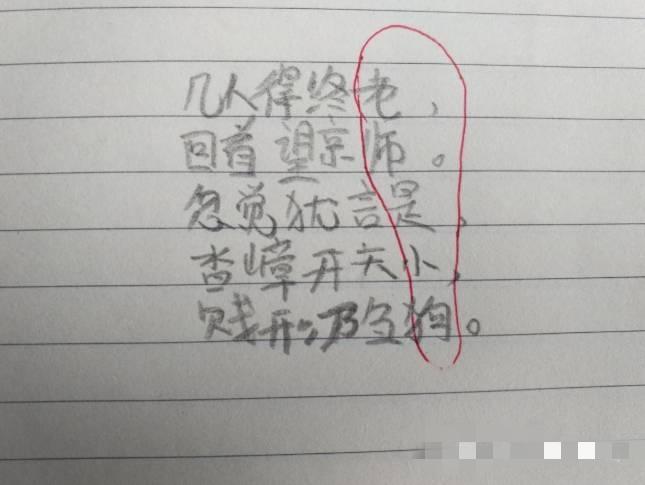 几人得终老,
回首望京师。
忽觉犹言是,
杳嶂开天小,
贱形乃刍狗。